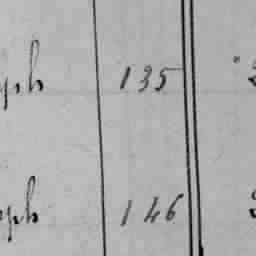 ph 135
ph 146